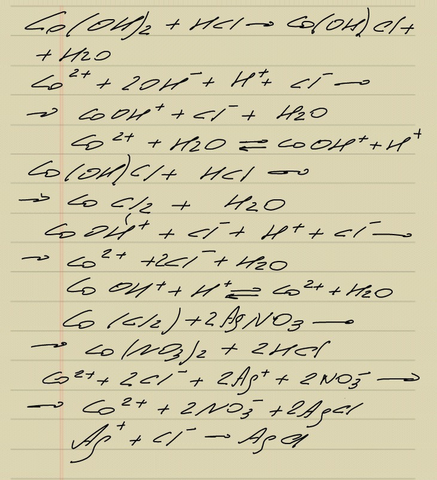 Co(OH)₂ + HCl → Co(OH)Cl +
+ H₂O
Co²⁺ + 2OH⁻ + H⁺ + Cl⁻ →
→ CoOH⁺ + Cl⁻ + H₂O
Co²⁺ + H₂O ⇌ CoOH⁺ + H⁺
Co(OH)Cl + HCl →
→ CoCl₂ + H₂O
CoOH⁺ + Cl⁻ + H⁺ + Cl⁻ →
→ Co²⁺ + 2Cl⁻ + H₂O
CoOH⁺ + H⁺ ⇌ Co²⁺ + H₂O
Co(Cl₂) + 2AgNO₃ →
→ Co(NO₃)₂ + 2HCl
Co²⁺ + 2Cl⁻ + 2Ag⁺ + 2NO₃⁻ →
→ Co²⁺ + 2NO₃⁻ + 2AgCl
Ag⁺ + Cl⁻ → AgCl